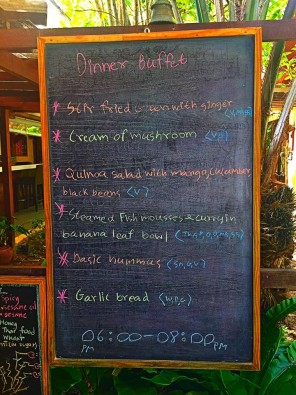 Dinner Buffet
* Stir fried with ginger
* Cream of mushroom
* Quinoa salad with mango, cucumber
black beans (V)
* Steamed Fish mousses & curry in
banana leaf bowl
* Basic hummus
* Garlic bread
06:00-08:00 PM
PM
Spicy
sesame oil
+ sesame
Honey
Thai food
wheat